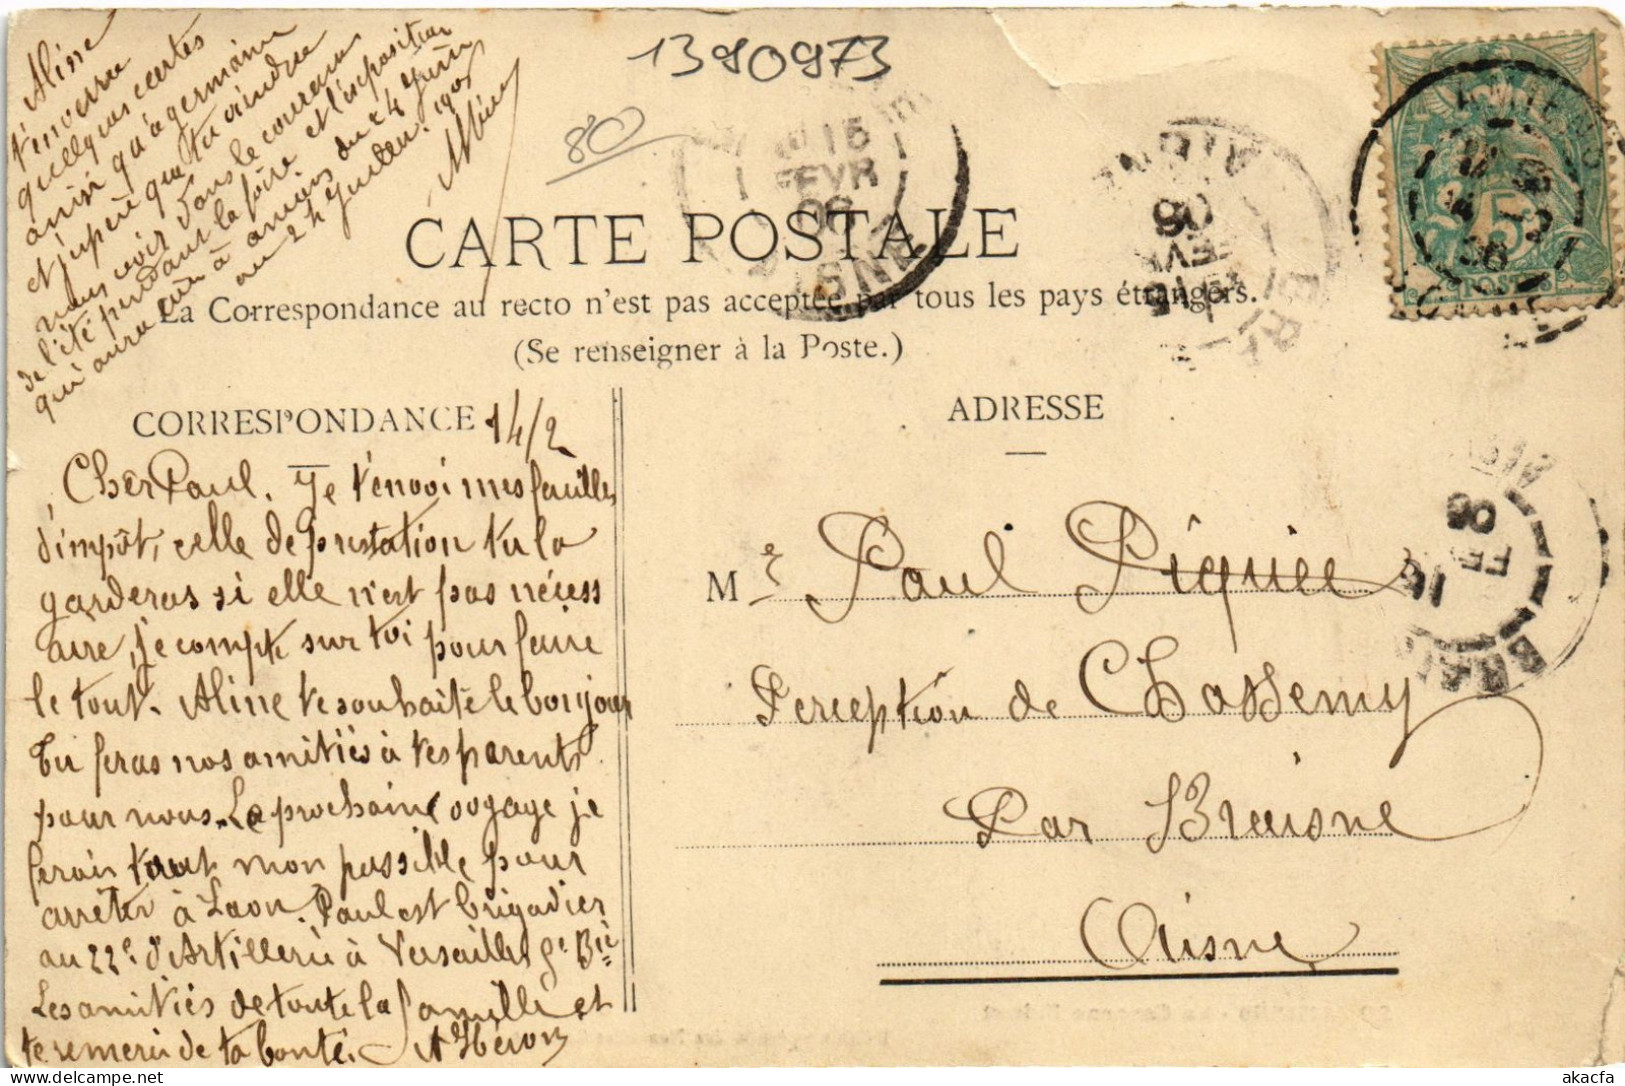 Aline
t'enverra
quelques cartes
ainsi qu'a germaine
et j'espère que tu viendra
nous voir dans le courant
de l'été pendant la foire et l'exposition
qui aura lieu à amiens du 24 Juin
au 24 Juillet. 1906
AHéron
1390973
80
CARTE POSTALE
La Correspondance au recto n'est pas acceptée par tous les pays étrangers.
(Se renseigner à la Poste.)
CORRESPONDANCE
14/2
Cher Paul. Je t'envoi mes feuilles
d'impôt, celle de prestation tu la
garderas si elle n'est pas nécess
aire, je compte sur toi pour faire
le tout. Aline te souhaite le bonjour
Tu feras nos amitiés à tes parents
pour nous. Le prochaine voyage je
ferais tout mon possible pour
arrêter à Laon. Paul est brigadier
au 22e d'Artillerie à Versailles 9e Bie
Les amitiés de toute la famille et
te remerci de ta bonté. AHéron
ADRESSE
Mr Paul Piquée
Perception de Chassemy
Par Braisne
Aisne
AMIENS
15
FEVR
06
AISNE
POSTES
5
akacfa